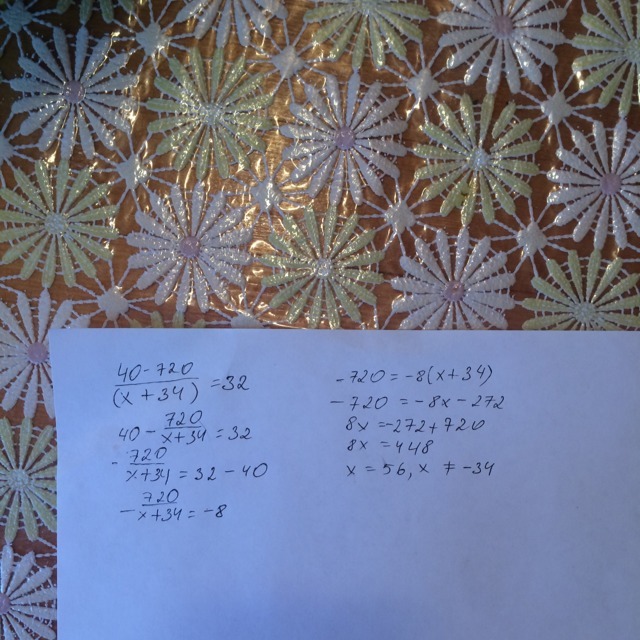 40-720/(x + 34) = 32
40 - 720/x+34 = 32
- 720/x+34 = 32 - 40
- 720/x+34 = -8
-720 = -8(x+34)
-720 = -8x - 272
8x = -272 + 720
8x = 448
x = 56, x ≠ -34